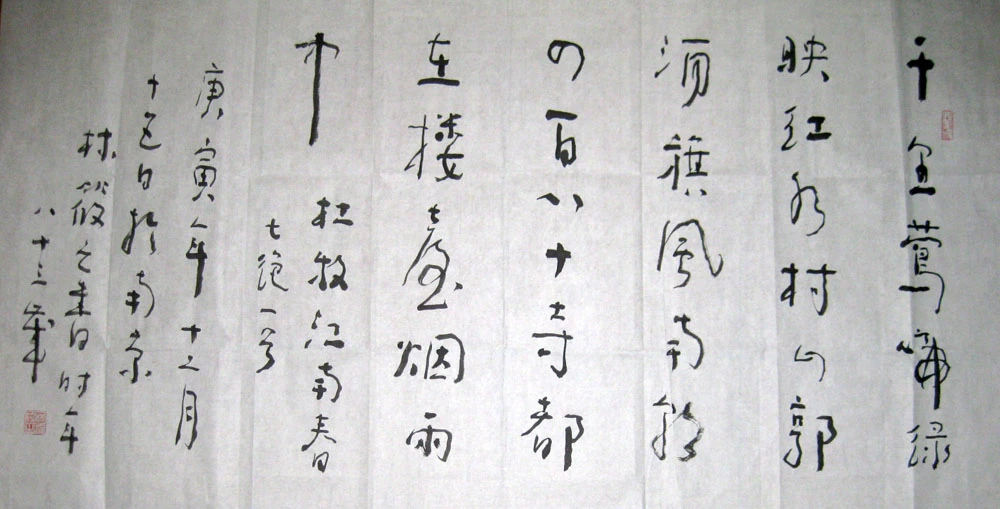 千里鶯啼绿
映红水村山郭
酒旗風南朝
四百八十寺都
在楼臺烟雨
中
杜牧江南春
七绝一首
庚寅年十二月
十五日於南京
林筱之書时年
八十三歲